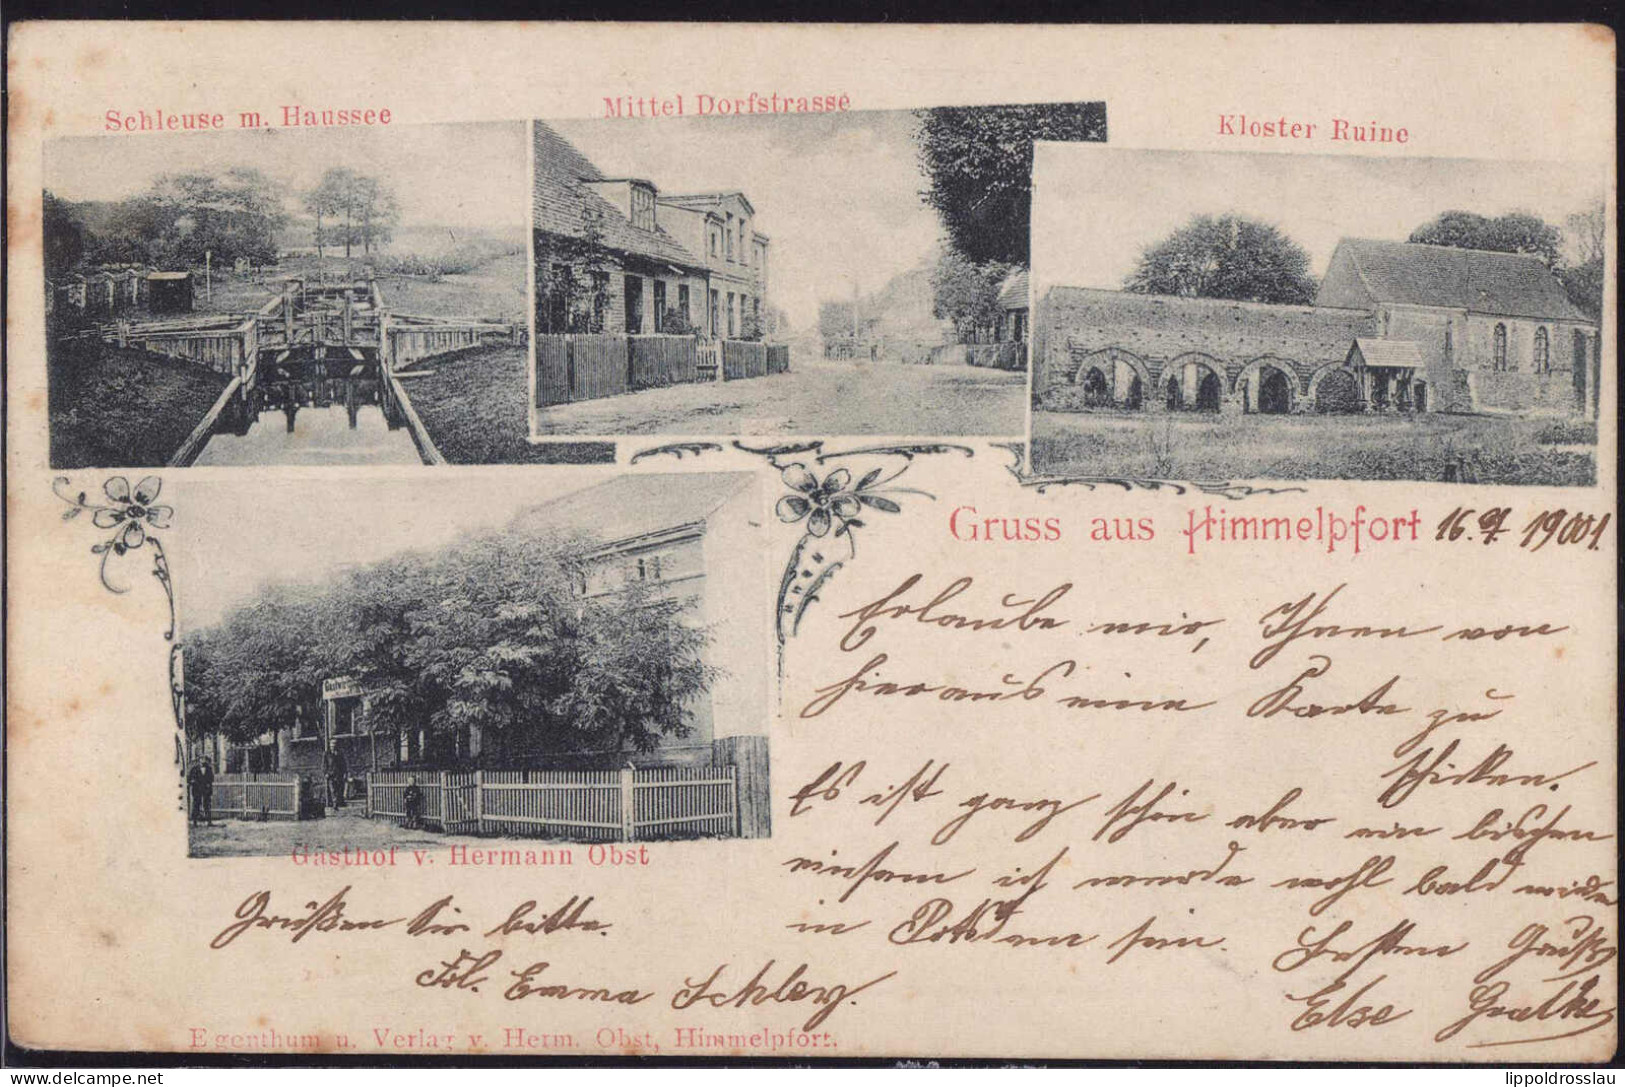 Schleuse m. Haussee
Mittel Dorfstrasse
Kloster Ruine
Gruss aus Himmelpfort 16. 7. 1901.
Erlaube mir, Ihnen von
hier aus eine Karte zu
schicken.
Es ist ganz schön aber ein bischen
einsam ich werde wohl bald wieder
in Potsdam sein. Besten Gruß
Else
Gasthof v. Hermann Obst
Grüßen Sie bitte.
Frl. Emma Schley.
Eigenthum u. Verlag v. Herm. Obst, Himmelpfort.
© delcampe.net
lippoldrosslau